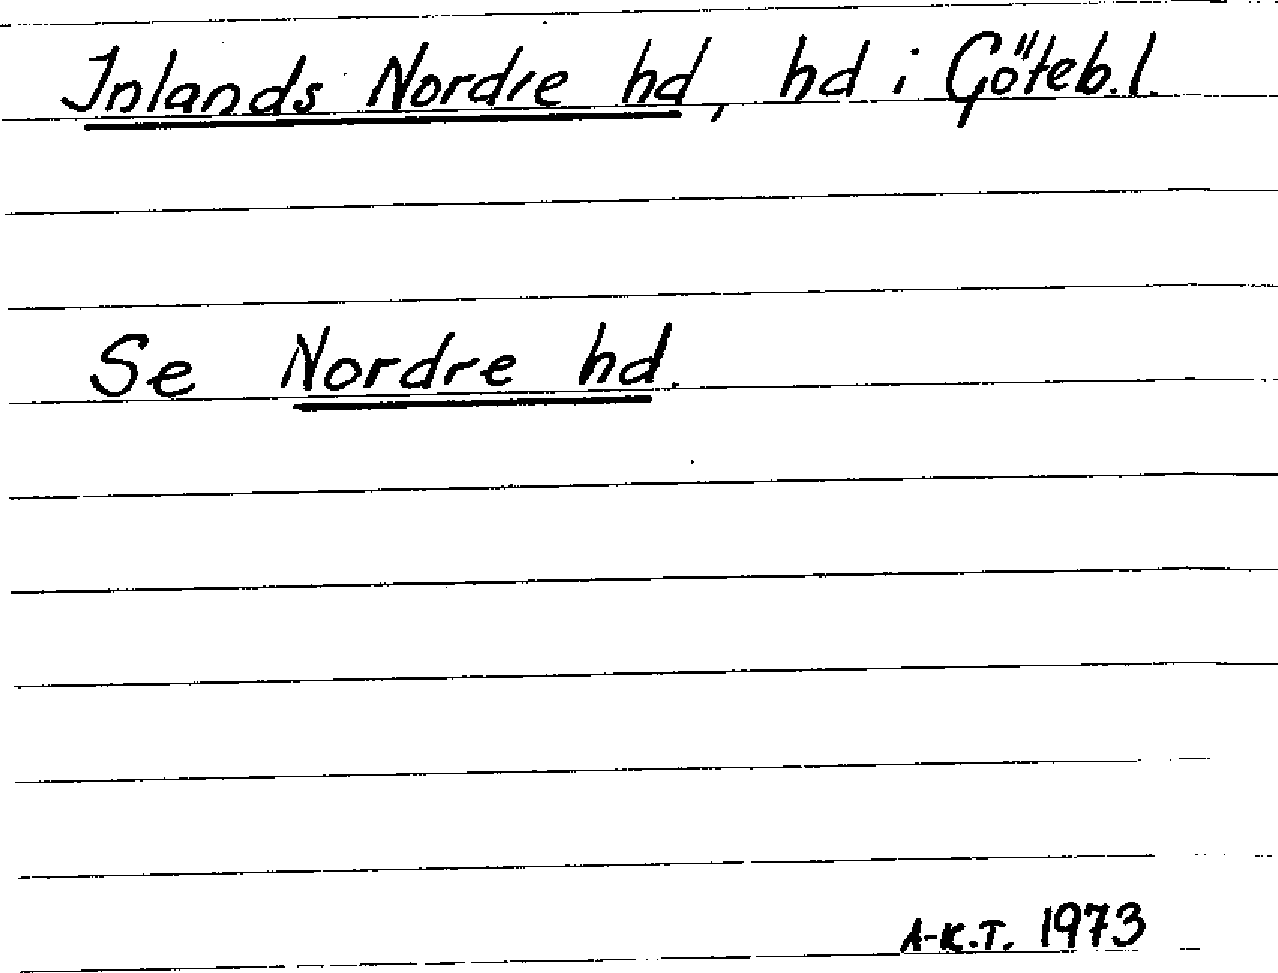 Inlands Nordre hd, hd i Göteb.l.
Se Nordre hd.
A-K.T. 1973